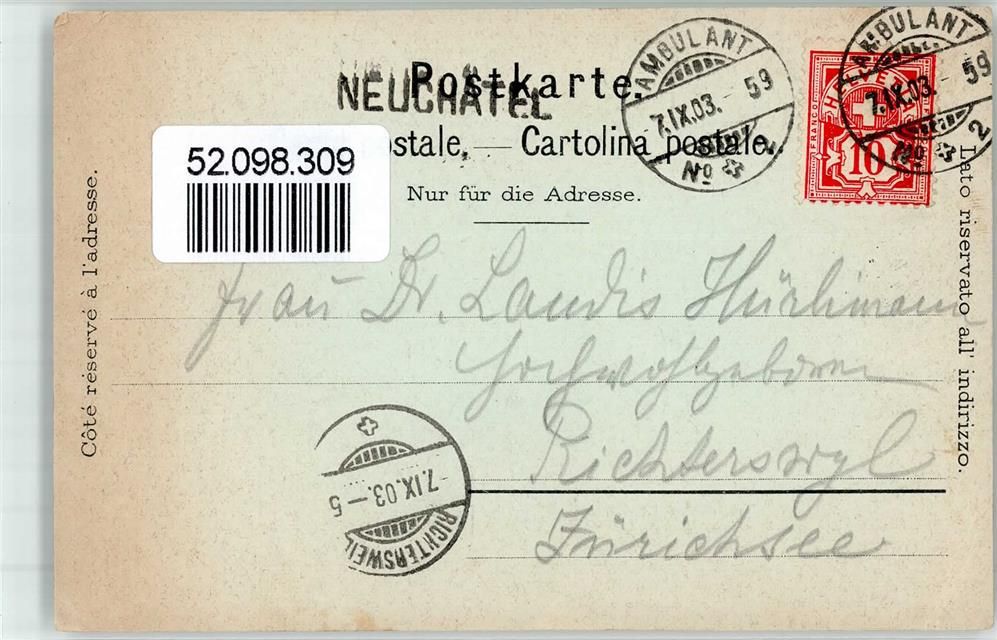 Postkarte.
NEUCHÂTEL
postale, — Cartolina postale.
Nur für die Adresse.
52.098.309
AMBULANT
7.IX.03. 59
No 2
AMBULANT
7.IX.03. 59
No 2
FRANCO
HELVETIA
10
Côté réservé à l'adresse.
Lato riservato all' indirizzo.
Frau Dr. Landis Hürlimann
Hochwohlgeboren
Richterswyl
Zürichsee
7.IX.03.–5
RICHTERSWEIL